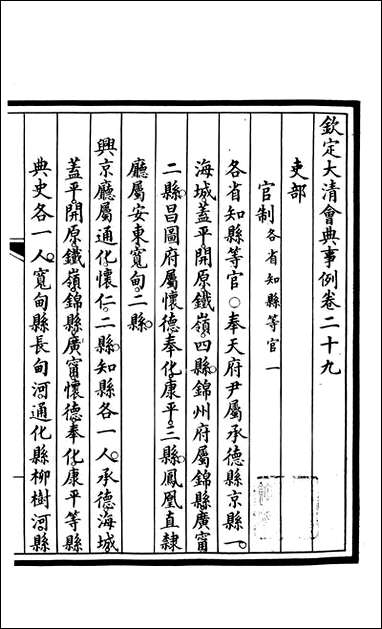 欽定大清會典事例卷二十九
吏部
官制各省知縣等官一
各省知縣等官○奉天府尹屬承德縣京縣一。
海城蓋平開原鐵嶺。四縣。錦州府屬錦縣廣甯
二縣。昌圖府屬懷德奉化。康平。三縣。鳳凰直隸
廳屬安東寬甸。二縣。
興京廳屬通化。懷仁。二縣。知縣各一人。承德海城
蓋平開原鐵嶺錦縣。廣甯懷德奉化。康平等縣
典史各一人。寬甸縣長甸河通化縣柳樹河縣